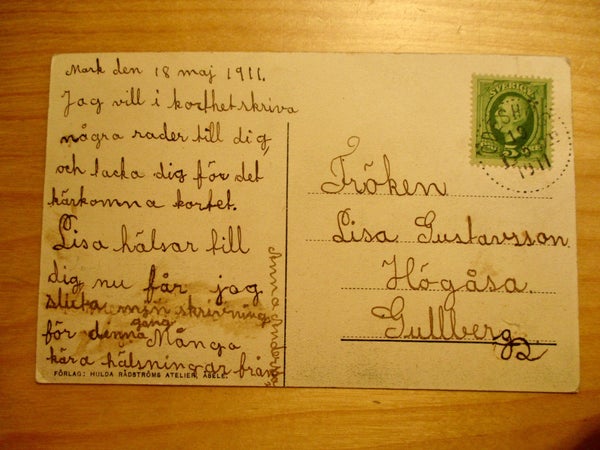 Mark den 18 maj 1911.
Jag vill i korthet skriva
några rader till dig
och tacka dig för det
härkomna kortet.
Lisa hälsar till
dig nu får jag
sluta min skrivning
för denna gång Många
kära hälsningar från
Anna
FÖRLAG: HULDA RÅDSTRÖMS ATELIER, ÅSELE.
SVERIGE
1911
Fröken
Lisa Gustavsson
Högåsa.
Gullberg